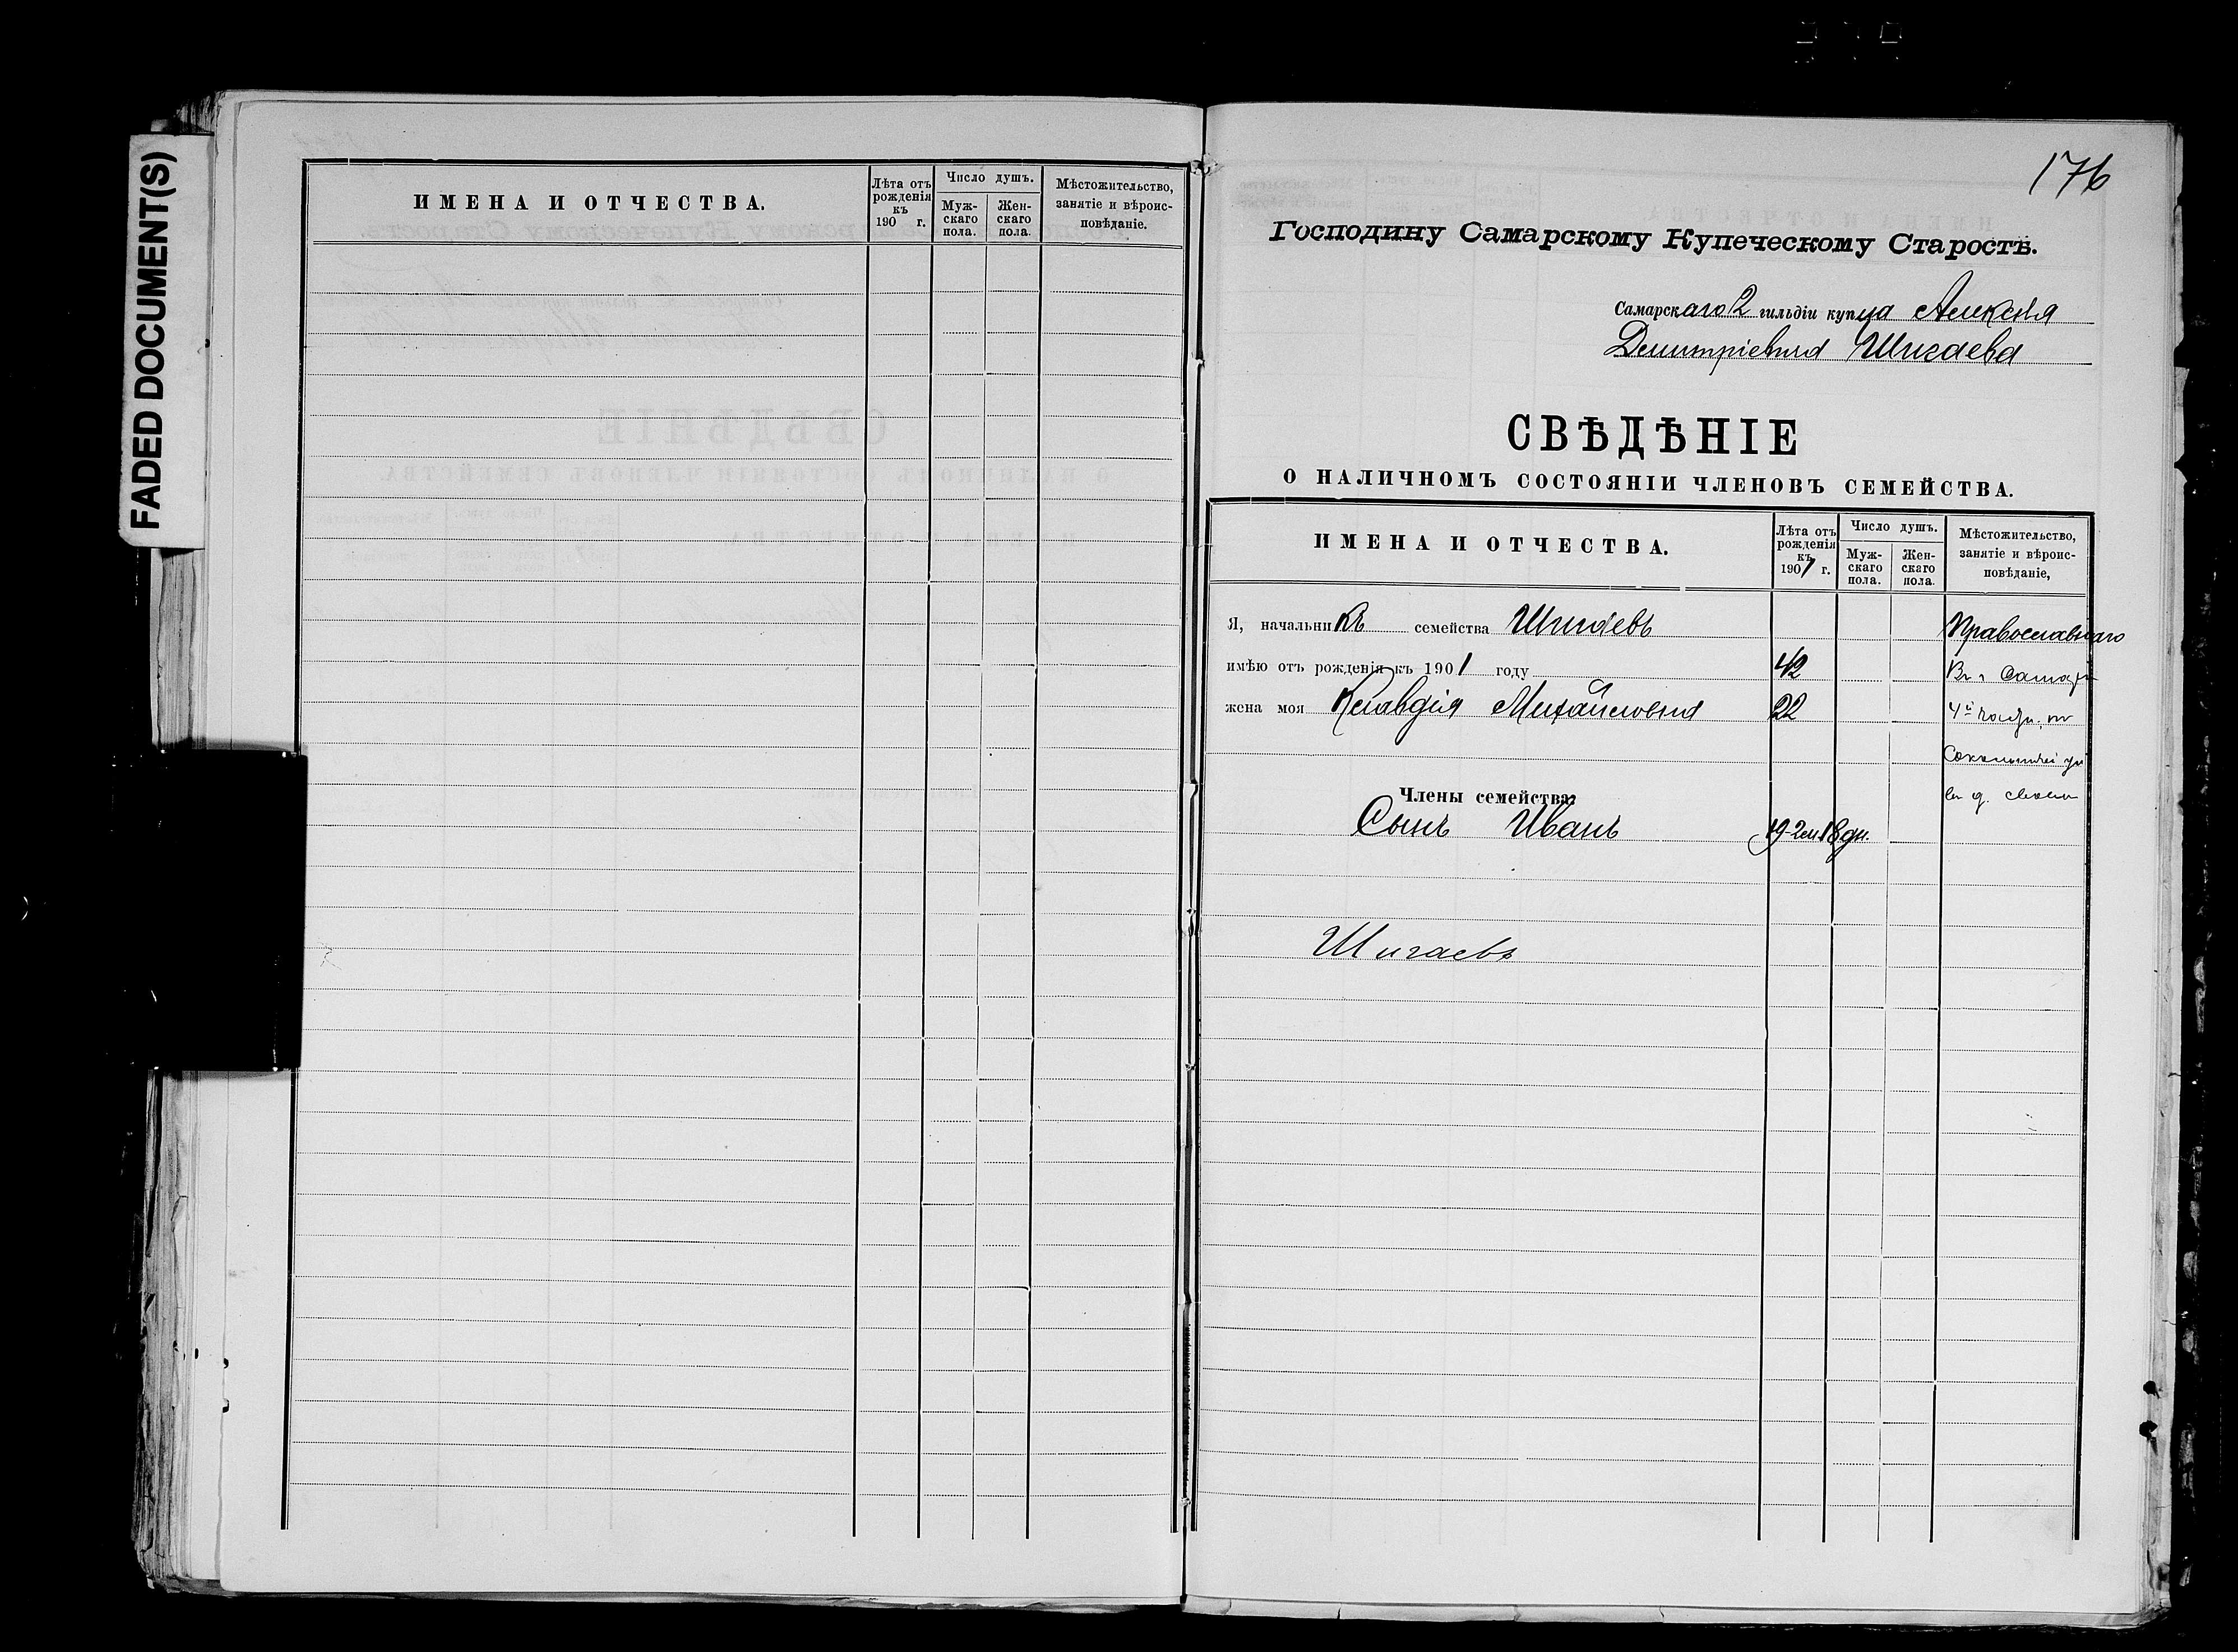 FADED DOCUMENT(S)
ИМЕНА И ОТЧЕСТВА.
Лѣта отъ рожденія къ 190 г.
Число душъ.
Муж-скаго пола.
Жен-скаго пола.
Мѣстожительство, занятіе и вѣроис-повѣданіе.
176
Господину Самарскому Купеческому Старостѣ.
Самарскаго 2 гильдіи купца Алексѣя
Дмитріевича Шигаева
СВѢДѢНІЕ
О НАЛИЧНОМЪ СОСТОЯНІИ ЧЛЕНОВЪ СЕМЕЙСТВА.
ИМЕНА И ОТЧЕСТВА.
Лѣта отъ рожденія къ 1901 г.
Число душъ.
Муж-скаго пола.
Жен-скаго пола.
Мѣстожительство, занятіе и вѣроис-повѣданіе,
Я, начальникъ семейства Шигаевъ Православнаго
имѣю отъ рожденія къ 1901 году 42 Въ г Самарѣ
жена моя Клавдія Михайловна 22 4й части, по
Члены семейства:
Сынъ Иванъ
Шигаевъ